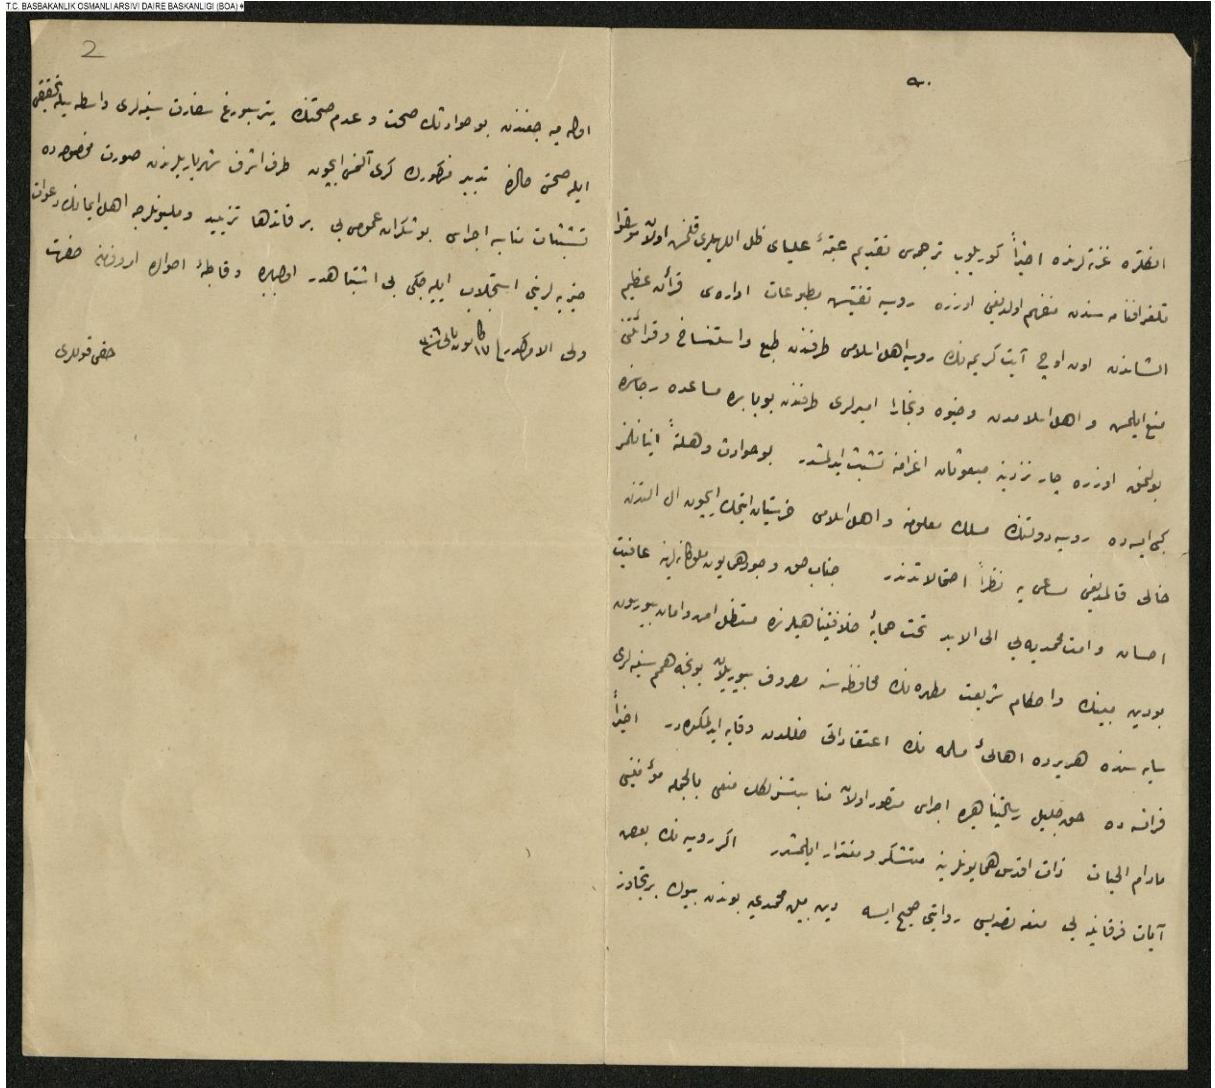 T.C. BASBAKANLIK OSMANLI ARSIVI DAIRE BASKANLIGI (BOA)
انكلتره غزته لرنده اخیراً كوریلوب ترجمه سی تقدیم عتبهٔ علیای ظل اللهیلری قلنمش اولان
تلغرافنامه سندن منفهم اولدیغی اوزره روسیه تفتیش مطبوعات اداره سی قرآن عظیم
الشاندن اون اوچ آیت كریمه نك روسیه اهل اسلامی طرفندن طبع و استنساخ و قرائتنی
منع ایلمش و اهل اسلامدن و خیوه و بخارا امیرلری طرفندن بوبابده مساعده
بولنمق اوزره چار نزدینه مبعوثان اعزامنه تشبث ایدلمشدر بو حوادث وهلةً اینانلمز
كبی ایسه ده روسیه دولتنك مسلك معلومنه و اهل اسلامی خرستیان ایتمك ایچون ال التندن
خالی قالمدیغی مساعی یه نظراً احتمالاتدندر جناب حق وجود همایون ملوكانه لرینه عافیت
احسان و امت محمدیه یی الی الابد تحت حمایهٔ خلافتپناهیلرنده مستظل امن و امان بیورسون
بو دین مبینك و احكام شریعت مطهره نك محافظه سنه مصروف بیوریلان بونجه همم سنیه لری
سایه سنده هر یرده اهالیٔ مسلمه نك اعتقاداتی خللدن وقایه ایدلمكده در اخیراً
فرانسه ده حق جلیل رسالتپناهیده اجراسی متصور اولان مناسبتسزلكك منعی بالجمله مؤمنینی
مادام الحیات ذات اقدس همایونلرینه متشكر و منتدار ایلمشدر اكر روسیه نك بعض
آیات فرقانیه یی منعه تصدیسی روایتی صحیح ایسه دین مبین محمدی یه بوندن بیوك بر تجاوز
2
اوله میه جغندن بو حوادثك صحت و عدم صحتنك پترسبورغ سفارت سنیه لری واسطه سیله تحقیقی
ایله صحتی حالنده تدبیر مذكورك كری آلنمسی ایچون طرف اشرف شهریاریلرندن صورت مخصوصه ده
تشبثات متینه اجراسی بو شكران عمومی یی بر قاتدها تزیید و ملیونلرجه اهل ایمانك دعوات
خیریه لرینی استجلاب ایلیه جكی بی اشتباهدر اولبابده و قاطبهٔ احوالده امر و فرمان حضرت
ولی الامركدر ١٧ كانون ثانی
حقی قوللری